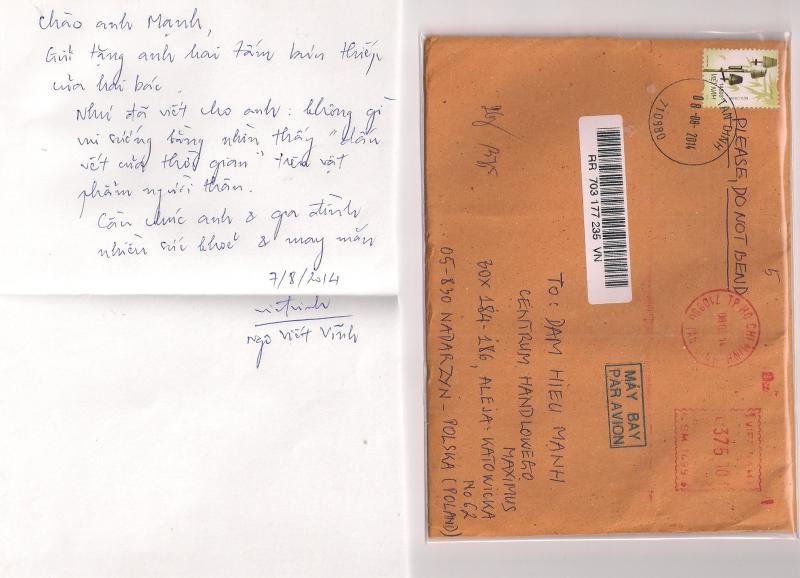 Chào anh Mạnh,
Gửi tặng anh hai tấm bưu thiếp
của hai bác.
Như đã viết cho anh: không gì
vui sướng bằng nhìn thấy "dấu
vết của thời gian" trên vật
phẩm người thân.
Cầu chúc anh & gia đình
nhiều sức khoẻ & may mắn
7/8/2014
Ngô Viết Vĩnh
VIET NAM
TAN DINH
08-08-2014
710980
PLEASE, DO NOT BEND
5
RR 703 177 235 VN
TP HO CHI MINH
MÁY BAY
PAR AVION
375 10
TO: DAM HIEU MANH
CENTRUM HANDLOWEGO
MAXIMUS
BOX 184-186, ALEJA: KATOWICKA
No 62
05-830 NADARZYN - POLSKA (POLAND)